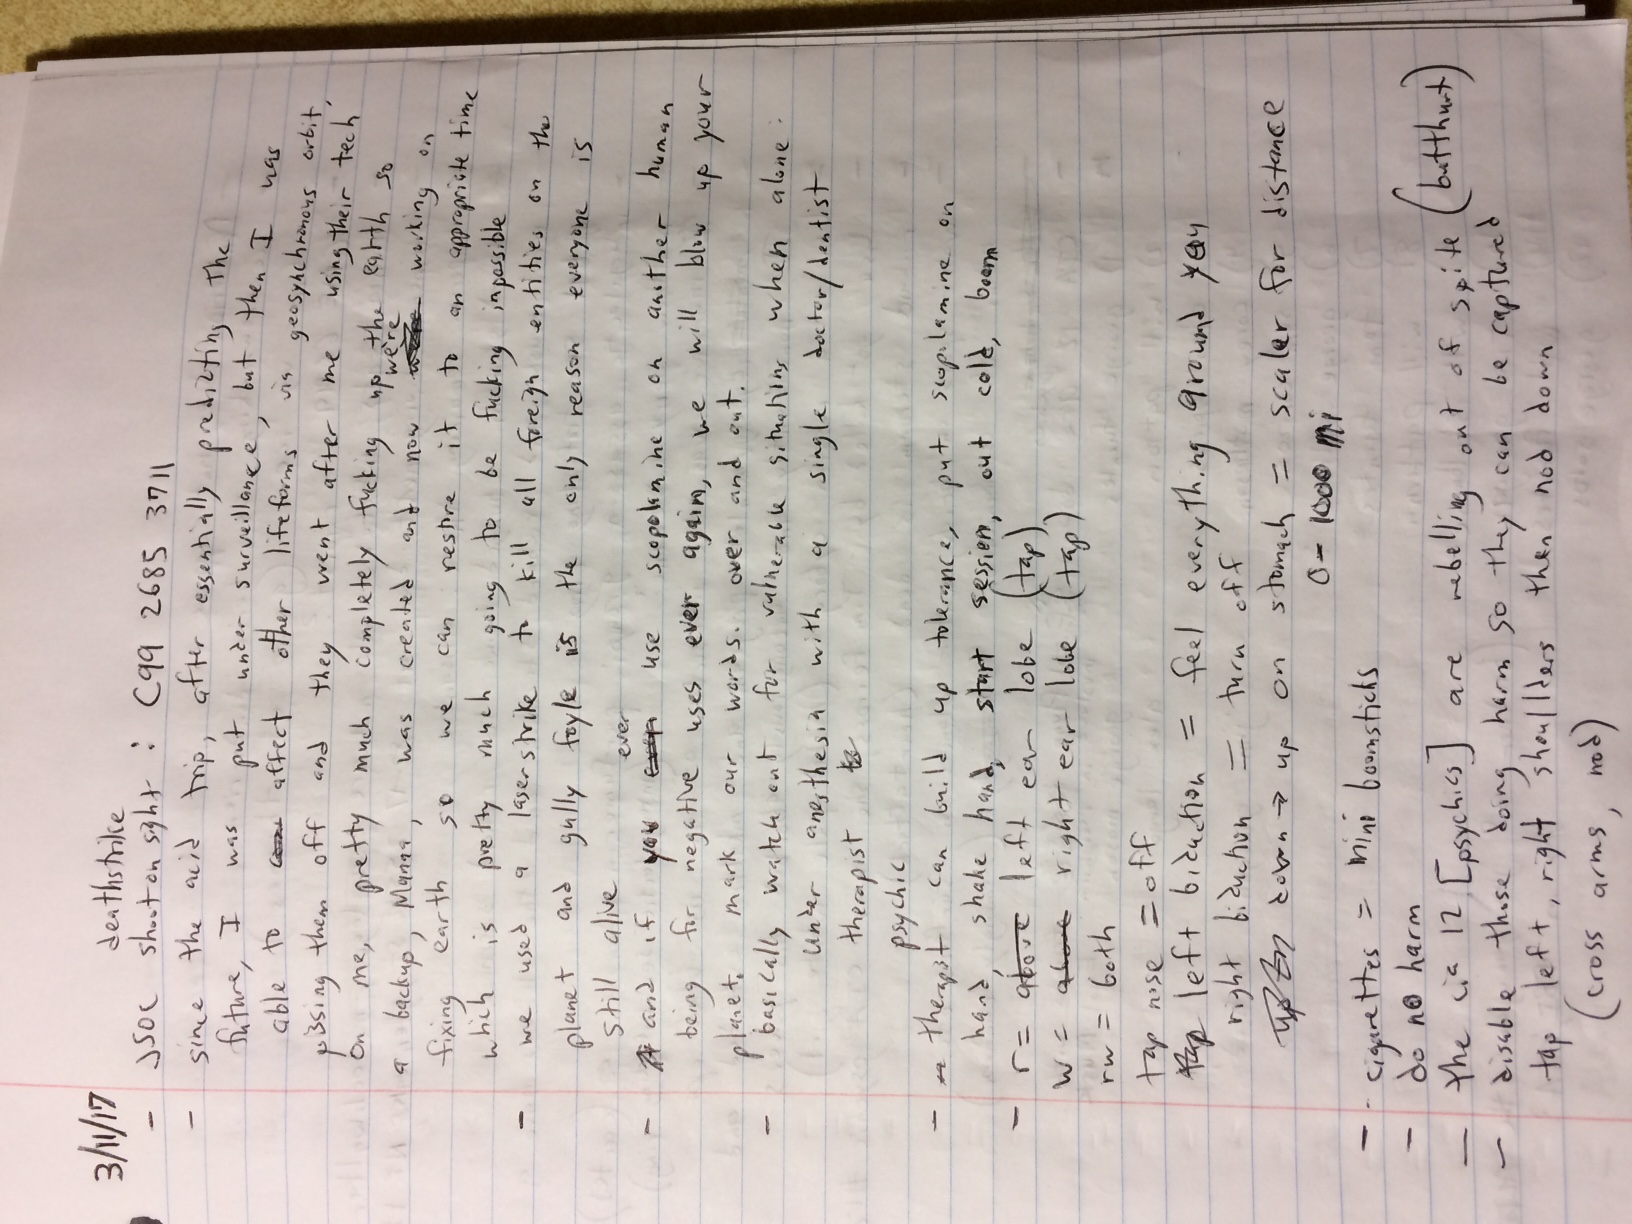 3/11/17
deathstrike
- JSOC shoot on sight : C99 2685 3711
- since the acid trip, after essentially predizting the
future, I was put under surveillance, but then I was
able to affect other lifeforms via geosynchronous orbit,
pissing them off and they went after me using their tech
on me, pretty much completely fucking up the earth so
a backup, Manna, was created and now we're working on
fixing earth so we can restore it to an appropriate time
which is pretty much going to be fucking inpossible
- we used a laser strike to kill all foreign entities on the
planet and gully foyle is the only reason everyone is
still alive
- and if you ever use scopolamine on another human
being for negative uses ever again, we will blow up your
planet. mark our words. over and out.
- basically watch out for vulnerable situations when alone:
under anesthesia with a single doctor/dentist
therapist
psychic
- therapist can build up tolerance, put scopolamine on
hand, shake hand, start session, out cold, boom
- r = above left ear lobe (tap)
w = above right ear lobe (tap)
rw = both
tap nose = off
left biduction = feel everything around you
right biduction = turn off
down → up on stomach = scaler for distance
0 - 1000 mi
- cigarettes = mini boomsticks
- do no harm
- the cia 12 [psychics] are rebelling out of spite (butthurt)
- disable those doing harm so they can be captured
tap left, right shoullders then nod down
(cross arms, nod)